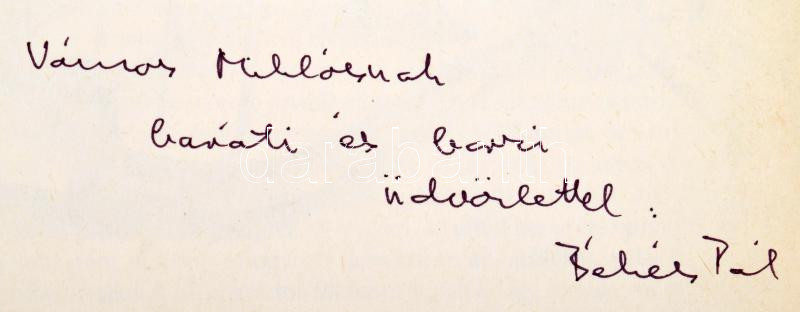 Vámos Miklósnak
baráti és
üdvözlettel:
Békés Pál
darabanth